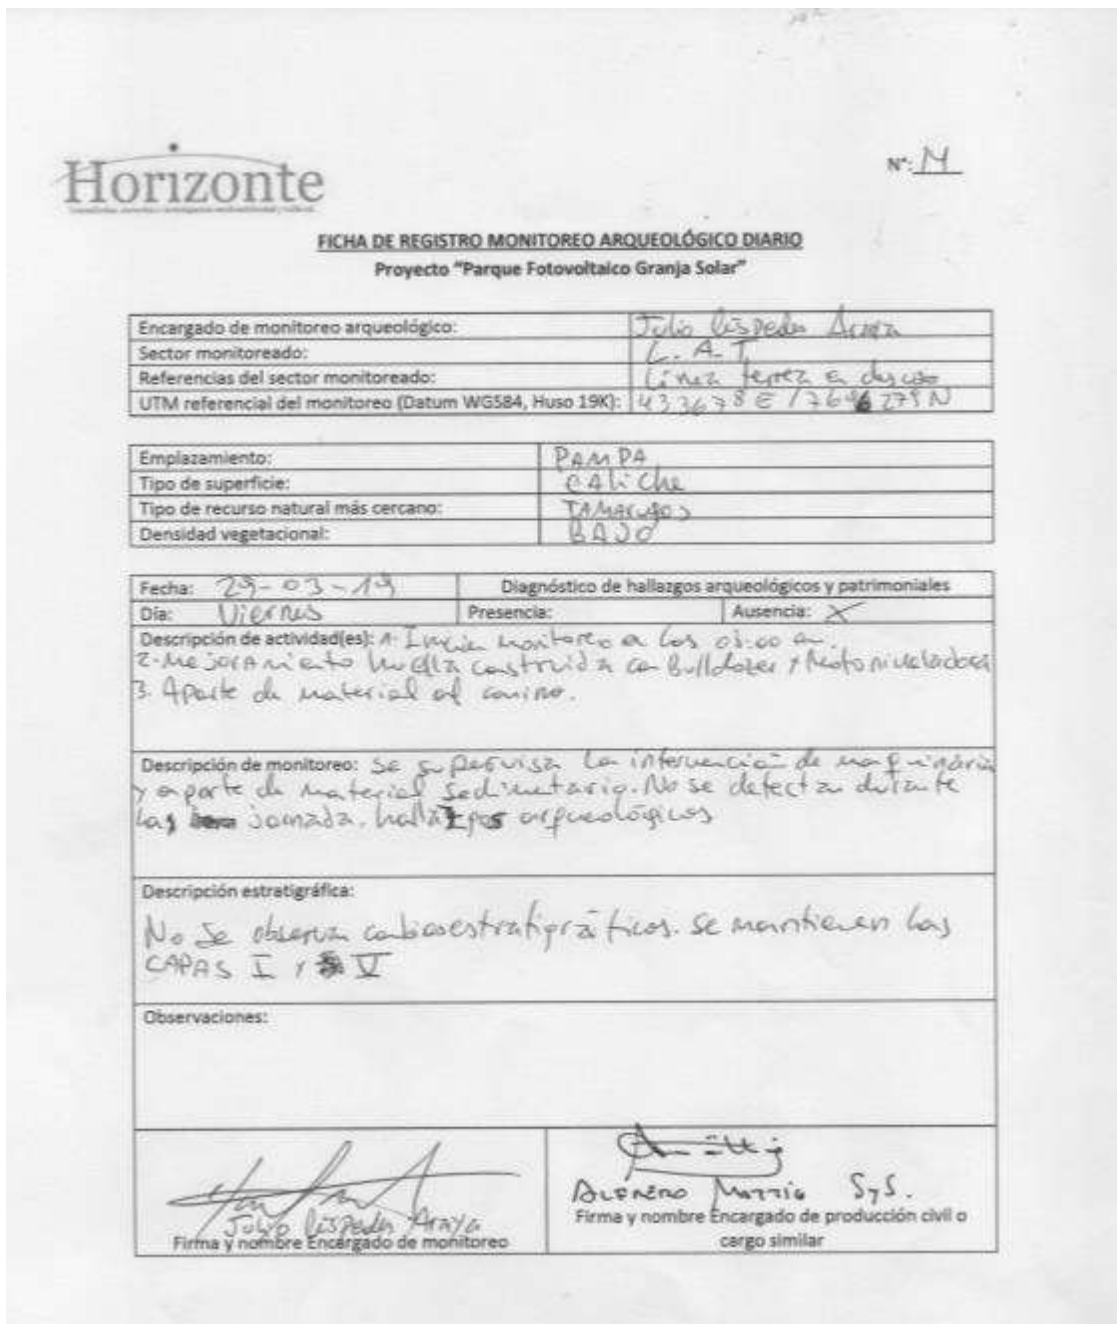 Horizonte
N°:
FICHA DE REGISTRO MONITOREO ARQUEOLÓGICO DIARIO
Proyecto "Parque Fotovoltaico Granja Solar"
Encargado de monitoreo arqueológico: Julio Céspedes Araya
Sector monitoreado: L.A.T
Referencias del sector monitoreado: Línea
UTM referencial del monitoreo (Datum WGS84, Huso 19K): 433678 E /
Emplazamiento: PAMPA
Tipo de superficie: CAliche
Tipo de recurso natural más cercano: TAMArugos
Densidad vegetacional: BAJO
Fecha: 29-03-19 Diagnóstico de hallazgos arqueológicos y patrimoniales
Día: Viernes Presencia: Ausencia: X
Descripción de actividad(es): 1- Inicia monitoreo a las
2- Mejoramiento huella construida con Bulldozer y Motoniveladora
3. Aporte de material al camino.
Descripción de monitoreo: Se supervisa la intervención de maquinaria
y aporte de material sedimentario. No se detectan durante
la jornada. hallazgos arqueológicos
Descripción estratigráfica:
No Se observan cambios estratigráficos. Se mantienen las
CAPAS I y V
Observaciones:
Julio Céspedes Araya
Firma y nombre Encargado de monitoreo
SyS.
Firma y nombre Encargado de producción civil o
cargo similar